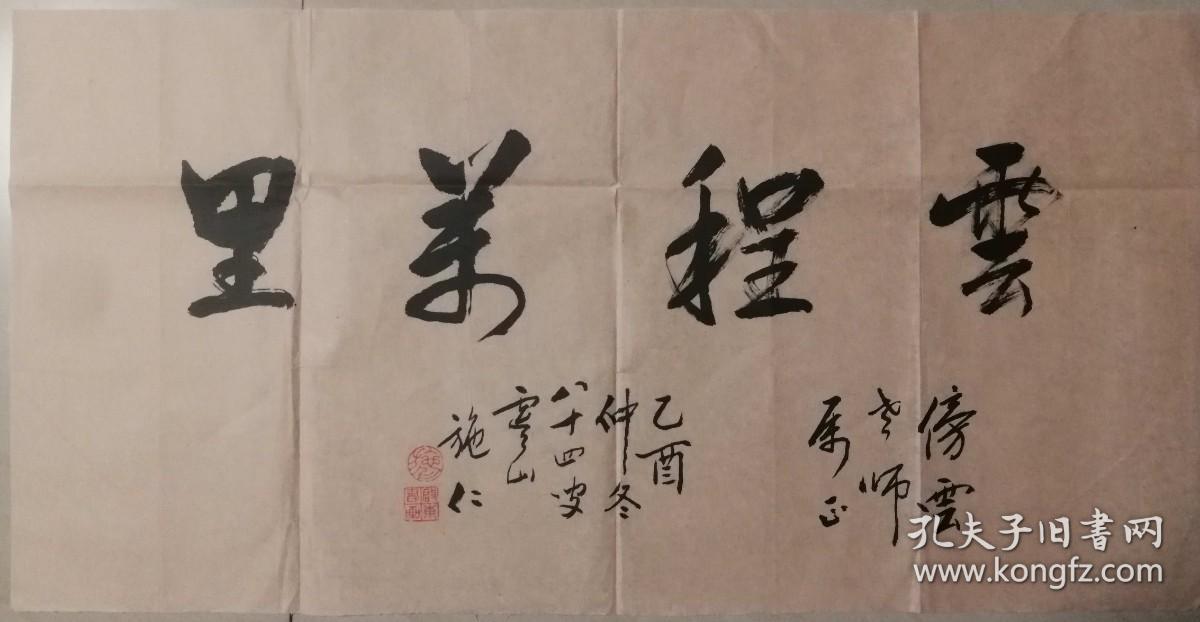 雲程萬里
傍雲
老师
属正
乙酉
仲冬
八十四叟
雲山
施仁
孔夫子旧书网
www.kongfz.com